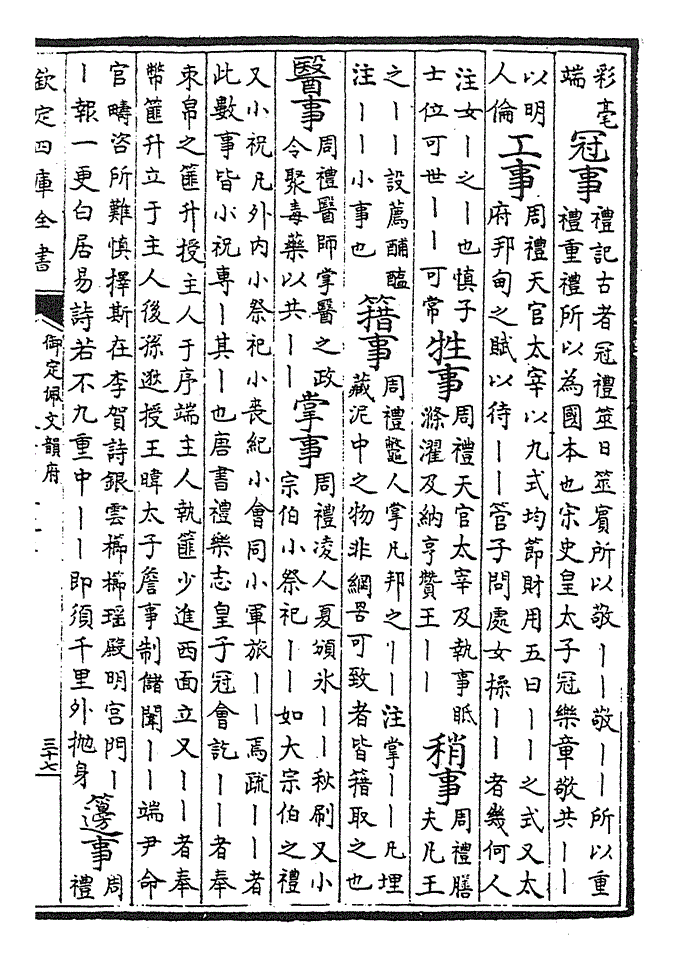 彩毫
端
冠事
禮記古者冠禮筮日筮賓所以敬丨丨敬丨丨所以重
禮重禮所以為國本也宋史皇太子冠樂章敬共丨丨
以明
人倫
工事
周禮天官太宰以九式均節財用五曰丨丨之式又太
府邦甸之賦以待丨丨管子問處女操丨丨者幾何人
注女丨之丨也慎子
士位可世丨丨可常
牲事
周禮天官太宰及執事眡
滌濯及納亨贊王丨丨
稍事
周禮膳
夫凡王
之丨丨設薦酺醢
注丨丨小事也
籍事
周禮鼈人掌凡邦之丨丨注掌丨丨凡埋
藏泥中之物非網罟可致者皆籍取之也
醫事
周禮醫師掌醫之政
令聚毒藥以共丨丨
掌事
周禮凌人夏頒氷丨丨秋刷又小
宗伯小祭祀丨丨如大宗伯之禮
又小祝凡外内小祭祀小喪紀小會同小軍旅丨丨焉疏丨丨者
此數事皆小祝專丨其丨也唐書禮樂志皇子冠會訖丨丨者奉
束帛之篚升授主人于序端主人執篚少進西面立又丨丨者奉
幣篚升立于主人後孫逖授王暐太子詹事制儲闈丨丨端尹命
官疇咨所難慎擇斯在李賀詩銀雲櫛櫛瑶殿明宫門丨
丨報一更白居易詩若不九重中丨丨即須千里外抛身
籩事
周
禮
欽定四庫全書
御定佩文韻府
三十七